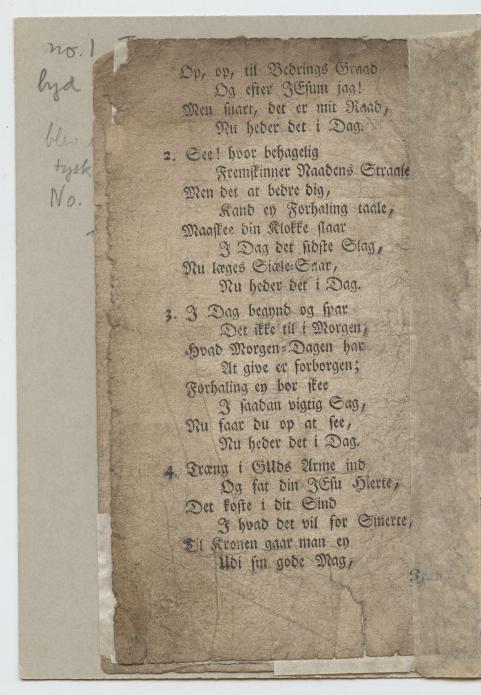 no. 1
byd
blev
tysk
No.
Op, op, til Bedrings Graad
Og efter JEsum jag!
Men snart, det er mit Raad,
Nu heder det i Dag.
2. See! hvor behagelig
Fremskinner Naadens Straale
Men det at bedre dig,
Kand ey Forhaling taale,
Maaskee din Klokke slaar
I Dag det sidste Slag,
Nu læges Siæle-Saar,
Nu heder det i Dag.
3. I Dag begynd og spar
Det ikke til i Morgen,
Hvad Morgen-Dagen har
At give er forborgen;
Forhaling ey bør skee
I saadan vigtig Sag,
Nu faar du op at see,
Nu heder det i Dag.
4. Træng i GUds Arme ind
Og fat din JEsu Hierte,
Det koste i dit Sind
I hvad det vil for Smerte,
Til Kronen gaar man ey
Udi sin gode Mag,